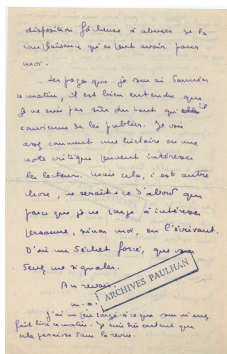 disposition fâcheuse à abuser de la
complaisance qu'on peut avoir pour
moi.
Les pages que je vous ai données
ce matin, il est bien entendu que
je ne suis pas sûr du tout qu'il
convienne de les publier. Je vois
assez comment une histoire ou une
note critique peuvent intéresser
les lecteurs. Mais cela, c'est autre
chose, ne serait-ce d'abord que
parce que je ne songe à intéresser
personne, sinon moi, en l'écrivant.
D'où un déchet forcé, que vous
devez me signaler.
Au revoir
ARCHIVES PAULHAN
J'ai un peu songé à ce que vous m'avez
fait lire ce matin. Je suis très content que
cela paraisse dans la revue.